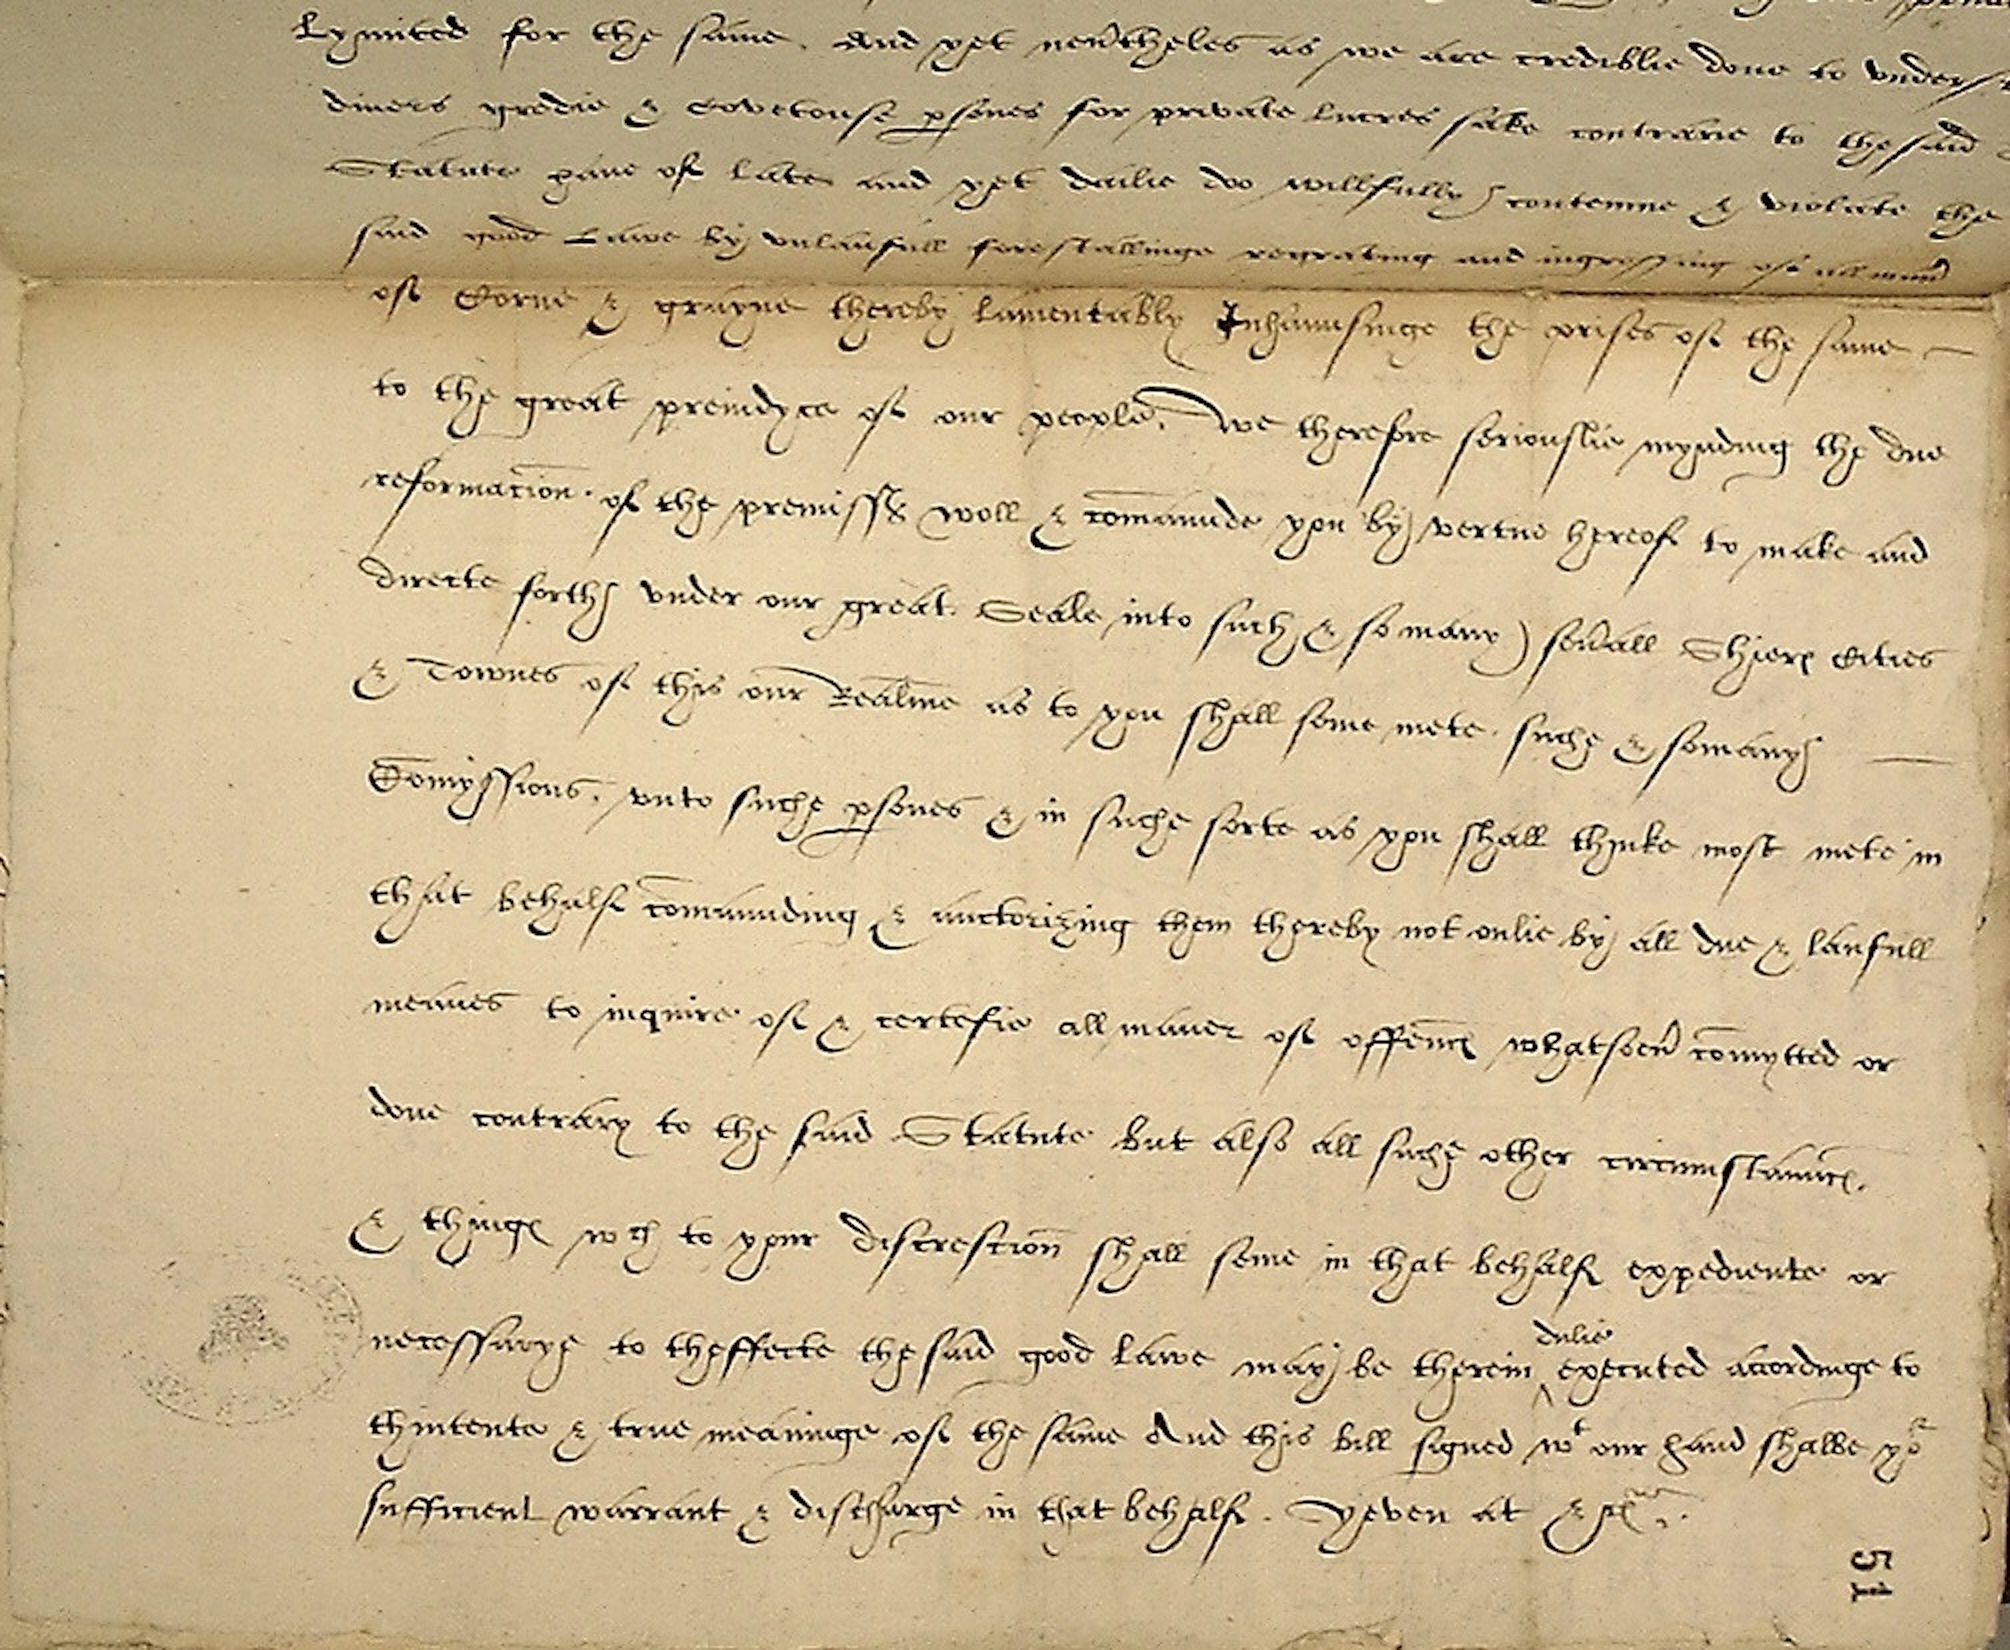 Lymited for the same. And yet neu'theles as we are crediblie done to underst
divers gredie & Covetouse psones for private lucres sake contrarie to the said
Statute have of late and yet dailie doo willfully contemne & violate the
said good Lawe by unlaufull forestallinge regrating and ingrossing of all man'
of Corne & grayne thereby lamentably Inhaunsinge the prises of the same
to the great preiudyce of our people. We therefore seriouslie mynding the due
reformacion of the premisses woll & comaunde you by vertue hereof to make and
directe forth under our great Seale into such & so many seu'all Shiers Cities
& Townes of this our Realme as to you shall seme mete suche & somany
Comyssions, unto suche psones & in suche sorte as you shall thinke most mete in
that behalf comaunding & auctorizing them thereby not onlie by all due & laufull
meanes to inquire of & certefie all maner of offences whatsoeu' comytted or
done contrary to the said Statute but also all suche other circumstaunces.
& thinges wch to your discrescion shall seme in that behalf expediente or
necessarye to theffecte the said good lawe may be therein ^ dulie executed accordinge to
thintente & true meaninge of the same And this bill signed wt our hand shalbe yor
sufficient warrant & discharge in that behalf. Yeven at &
51